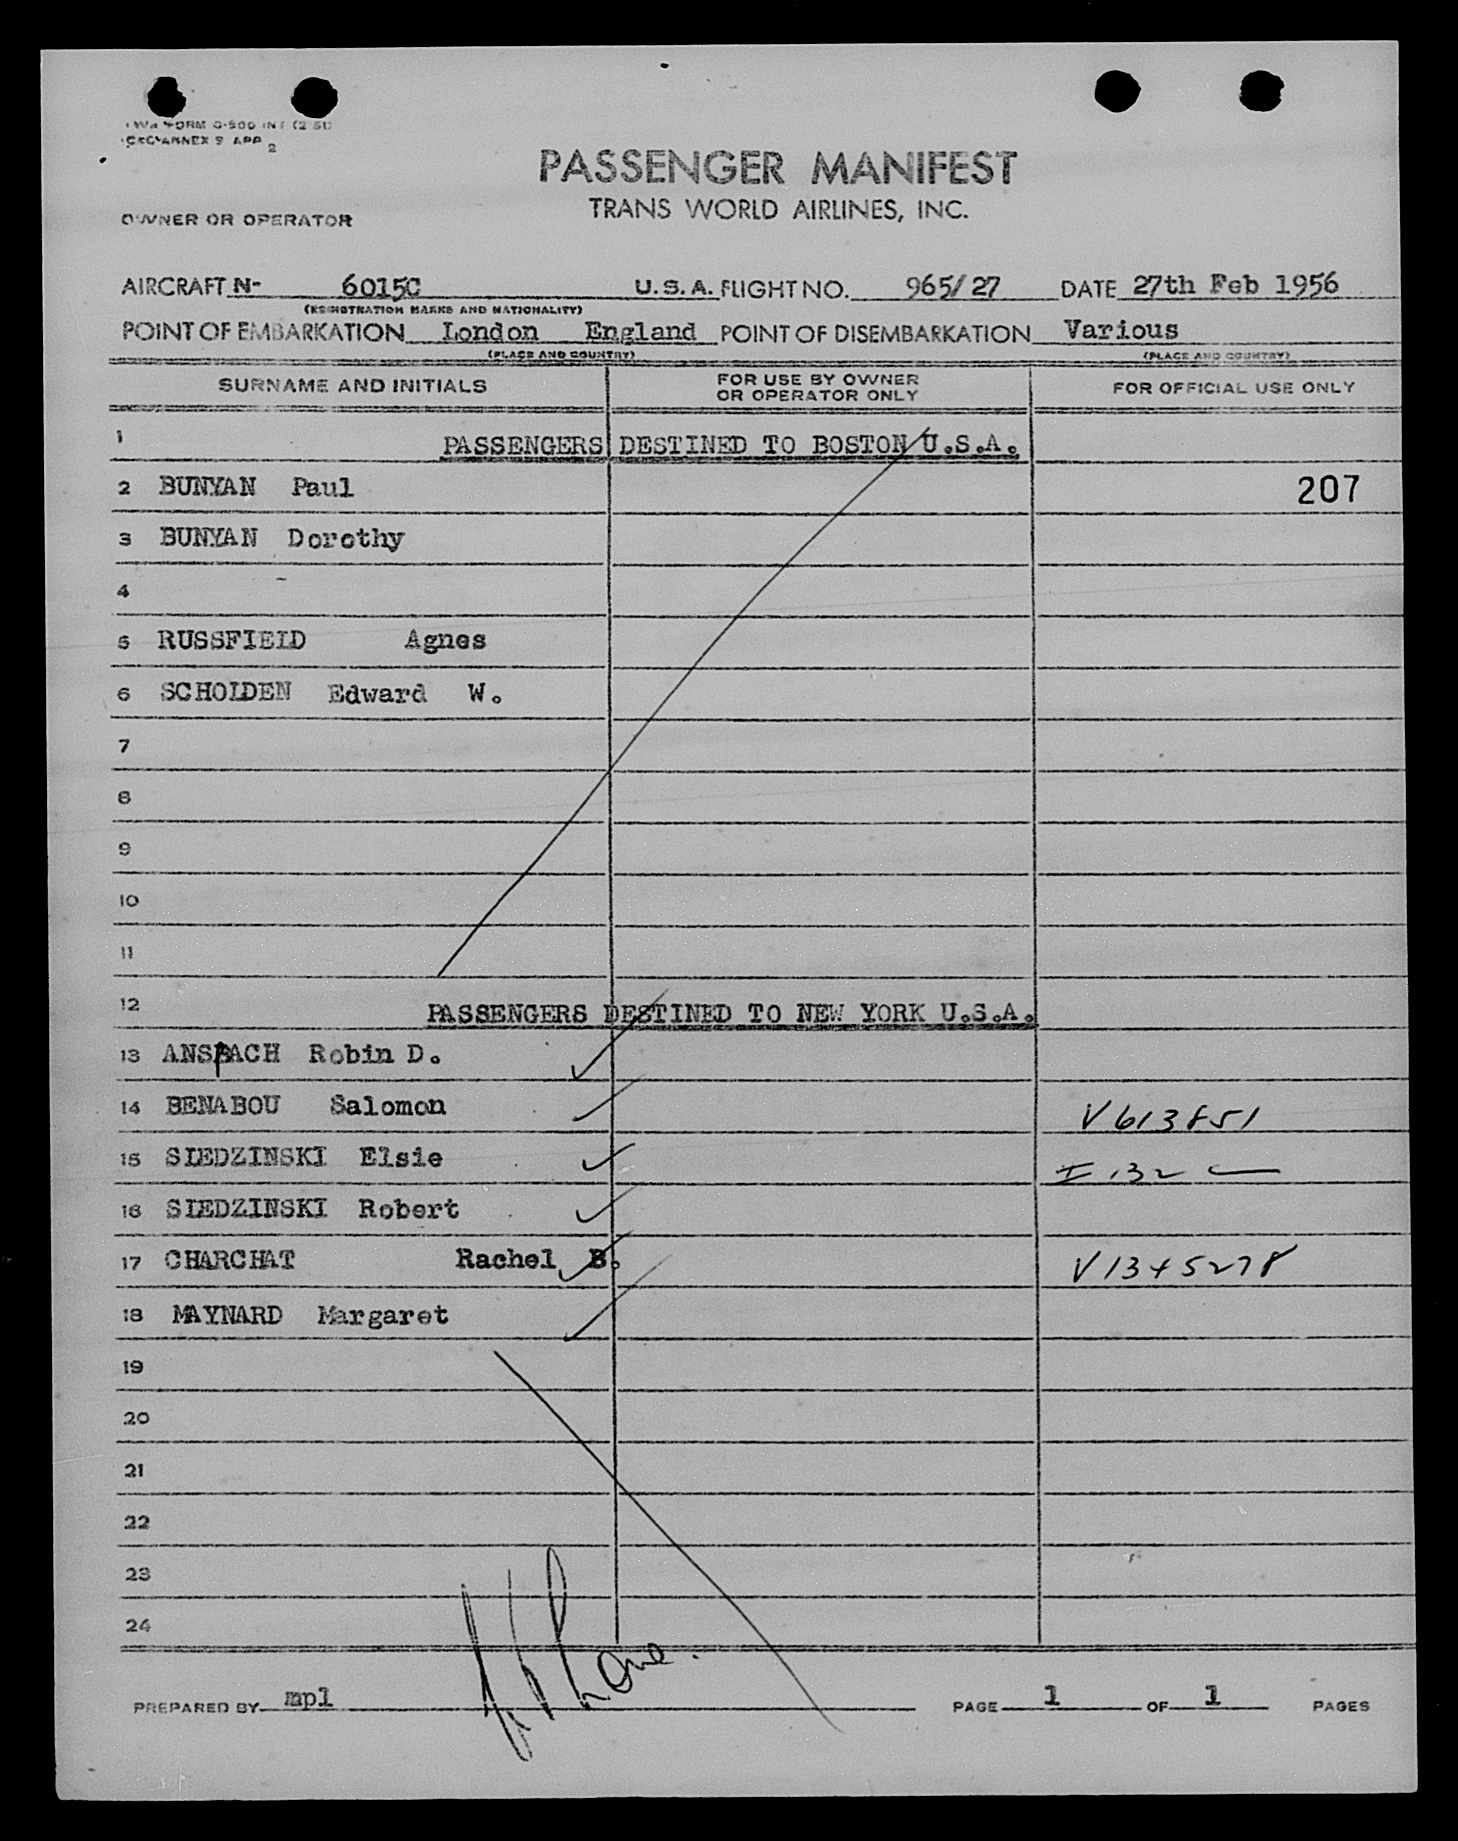 TWA FORM O-500 INT (2-51)
ICAO ANNEX 9 APP 2
PASSENGER MANIFEST
TRANS WORLD AIRLINES, INC.
OWNER OR OPERATOR
AIRCRAFT N- 6015C U.S.A. FLIGHT NO. 965/27 DATE 27th Feb 1956
(REGISTRATION MARKS AND NATIONALITY)
POINT OF EMBARKATION London England POINT OF DISEMBARKATION Various
(PLACE AND COUNTRY) (PLACE AND COUNTRY)
SURNAME AND INITIALS FOR USE BY OWNER OR OPERATOR ONLY FOR OFFICIAL USE ONLY
1 PASSENGERS DESTINED TO BOSTON U.S.A.
2 BUNYAN Paul 207
3 BUNYAN Dorothy
4
5 RUSSFIELD Agnes
6 SCHOLDEN Edward W.
7
8
9
10
11
12 PASSENGERS DESTINED TO NEW YORK U.S.A.
13 ANSPACH Robin D.
14 BENABOU Salomon V613851
15 SIEDZINSKI Elsie I 132
16 SIEDZINSKI Robert
17 CHARCHAT Rachel B. V1345278
18 MAYNARD Margaret
19
20
21
22
23
24
PREPARED BY mpl PAGE 1 OF 1 PAGES